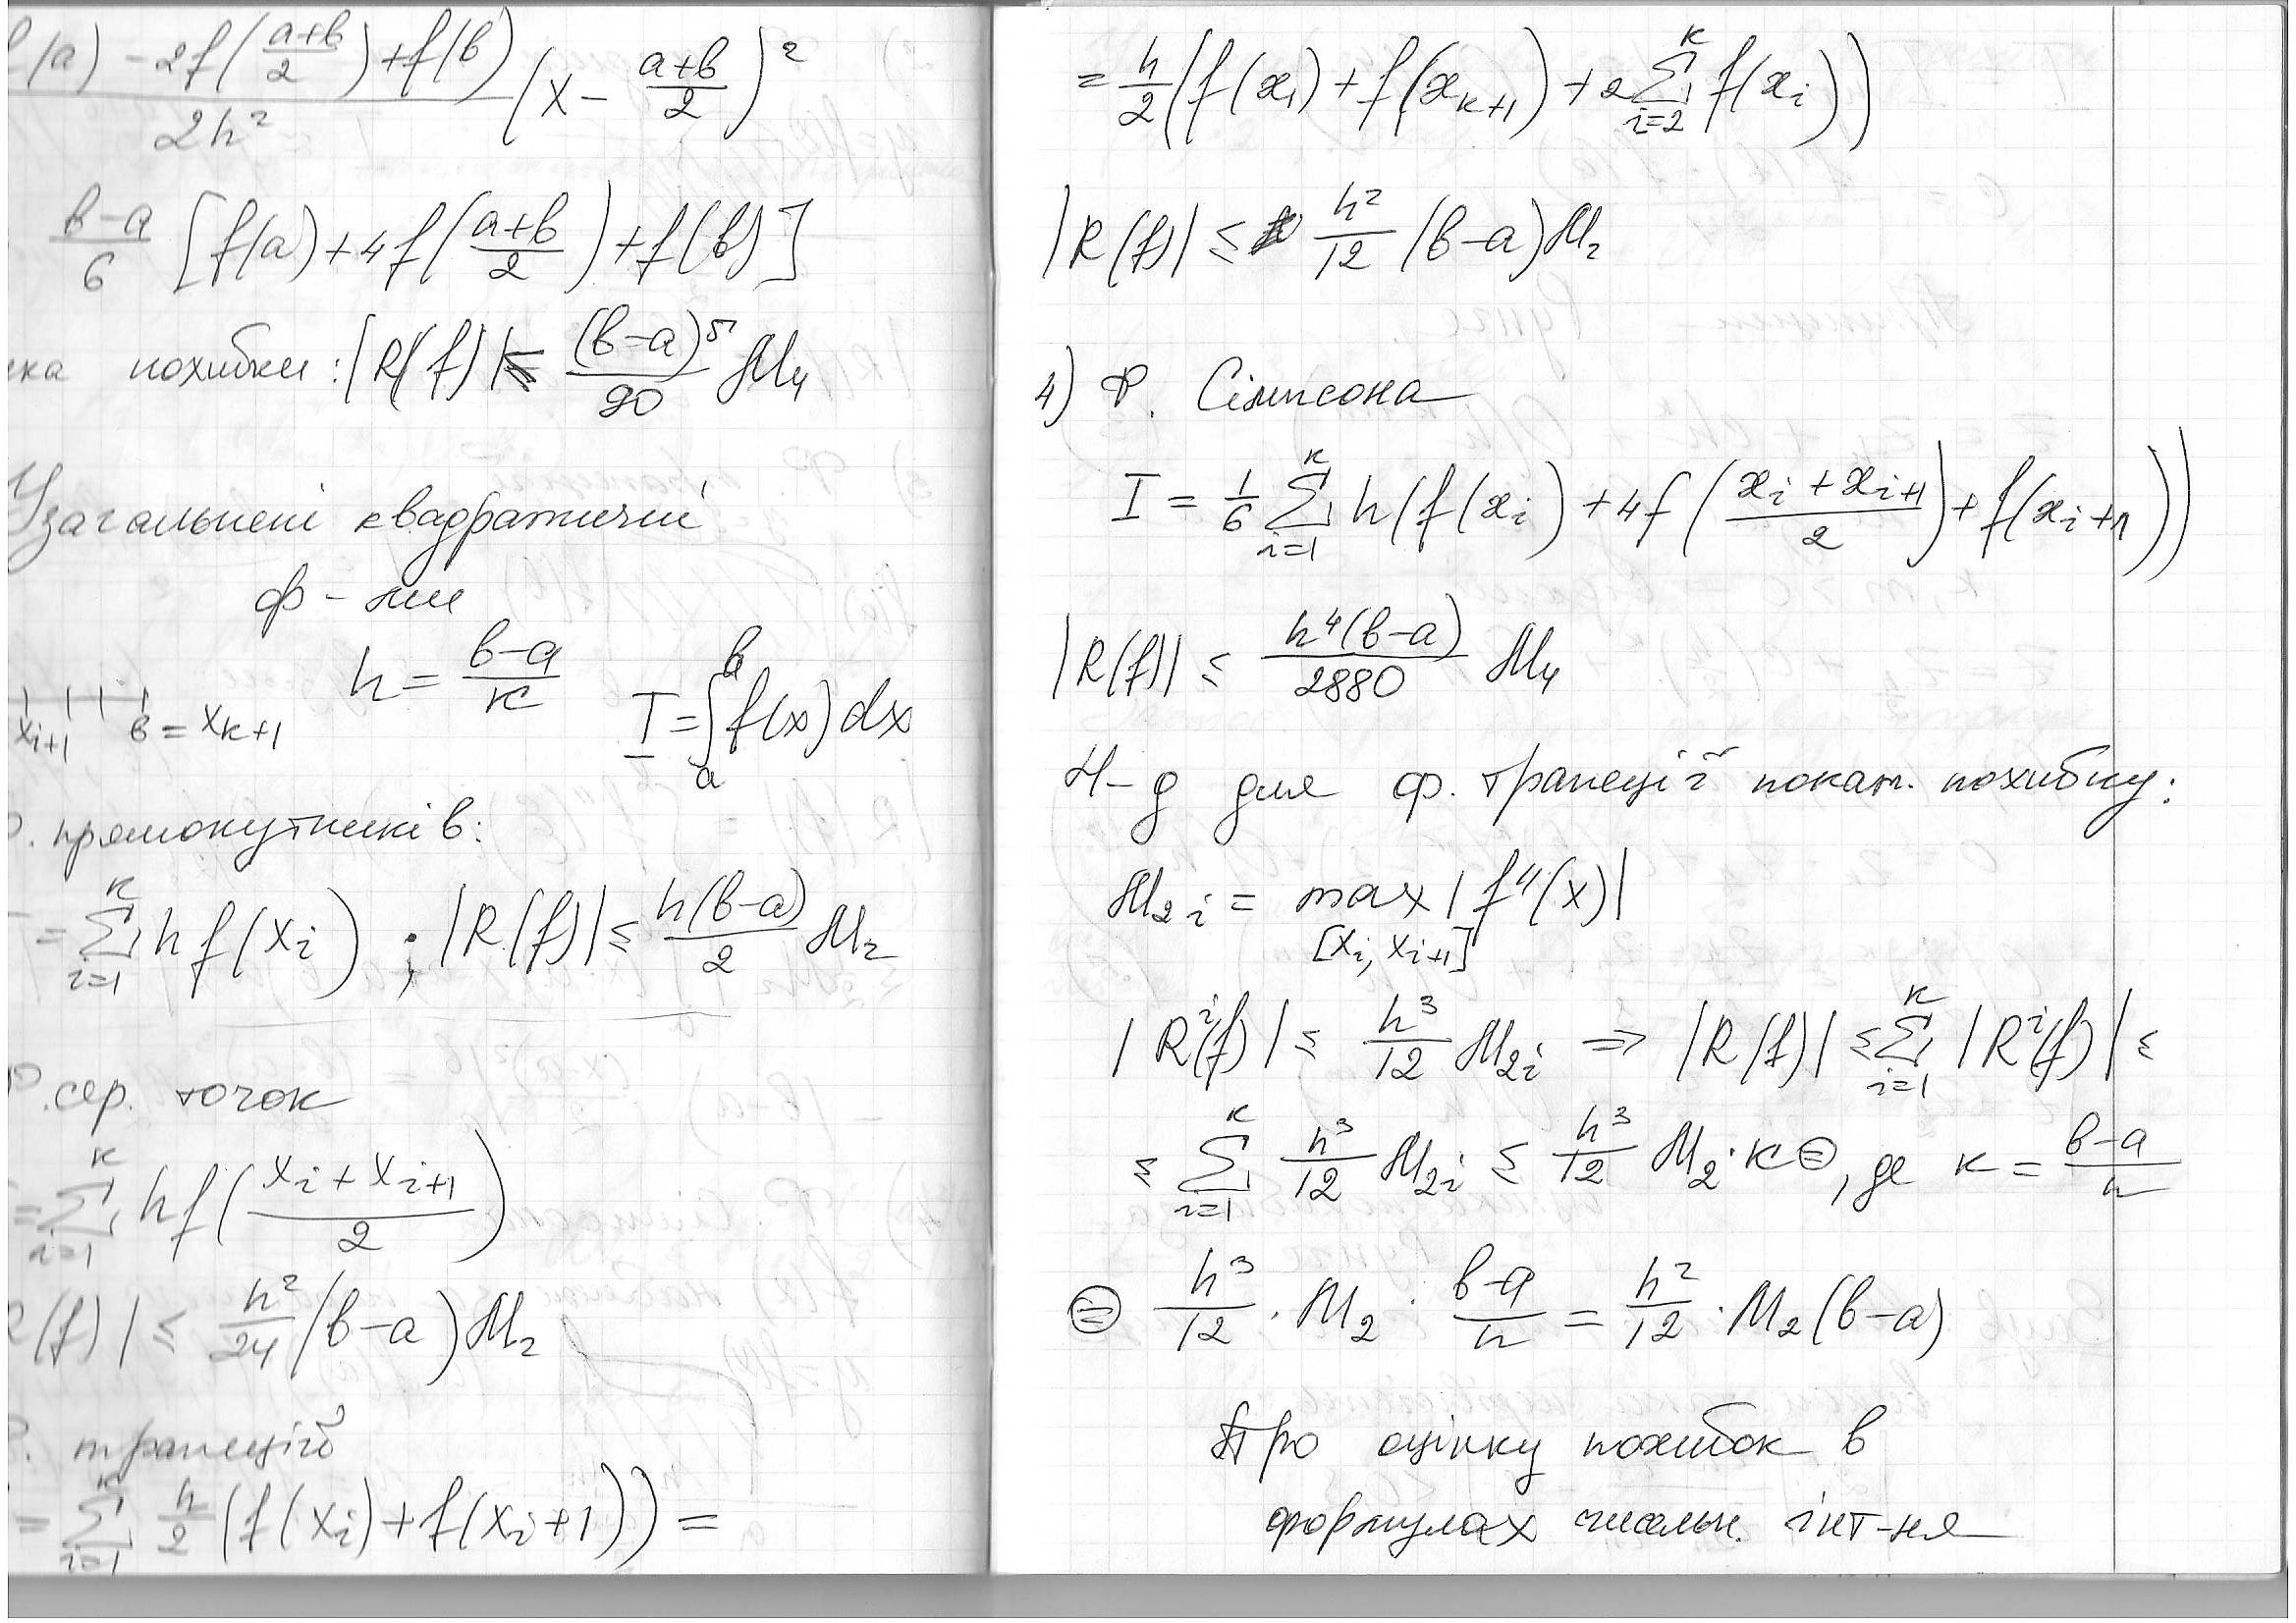 f(a) - 2f((a+b)/2) + f(b) / 2h² (x - (a+b)/2)²
(b-a)/6 [f(a) + 4f((a+b)/2) + f(b)]
нка похибки: |R(f)| ≤ (b-a)⁵/90 M₄
Узагальнені квадратичні
ф-ли
h = (b-a)/k
I = ∫ₐᵇ f(x)dx
xᵢ₊₁ b = xₖ₊₁
прямокутників:
= ∑ᵢ₌₁ᵏ h f(xᵢ) ; |R(f)| ≤ h(b-a)/2 M₂
сер. точок
= ∑ᵢ₌₁ᵏ hf((xᵢ + xᵢ₊₁)/2)
R(f)| ≤ h²/24 (b-a)M₂
трапецій
= ∑ᵢ₌₁ᵏ h/2 (f(xᵢ) + f(xᵢ+1)) =
= h/2 (f(x₁) + f(xₖ₊₁) + 2∑ᵢ₌₂ᵏ f(xᵢ))
|R(f)| ≤ h²/12 (b-a)M₂
4) Ф. Сімпсона
I = 1/6 ∑ᵢ₌₁ᵏ h(f(xᵢ) + 4f((xᵢ + xᵢ₊₁)/2) + f(xᵢ₊₁))
|R(f)| ≤ h⁴(b-a)/2880 M₄
Н-д для ф. трапецій покаж. похибку:
M₂ᵢ = max |f''(x)|
[xᵢ, xᵢ₊₁]
|Rⁱ(f)| ≤ h³/12 M₂ᵢ ⇒ |R(f)| ≤ ∑ᵢ₌₁ᵏ |Rⁱ(f)| ≤
≤ ∑ᵢ₌₁ᵏ h³/12 M₂ᵢ ≤ h³/12 M₂·k ⊜, де k = (b-a)/h
⊜ h³/12 · M₂ · (b-a)/h = h²/12 · M₂(b-a)
Про оцінку похибок в
формулах чисельн. інт-ня